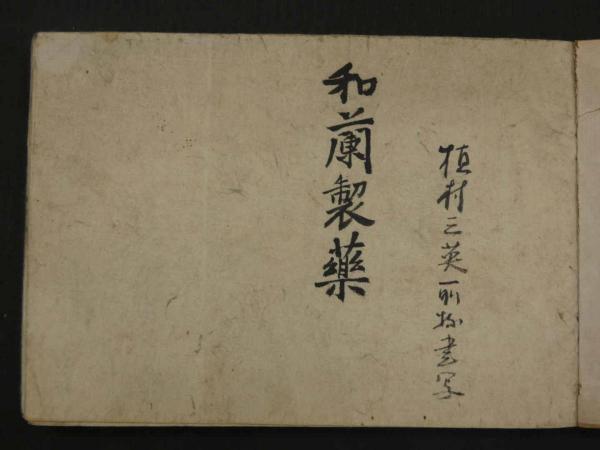 植村三英所 書写
和蘭製藥